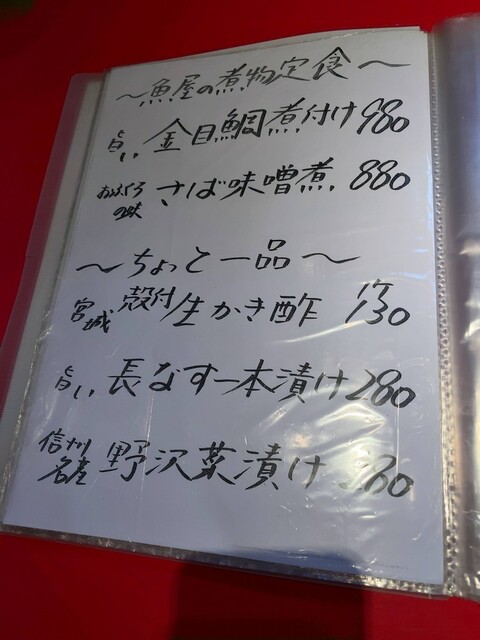 ～魚屋の煮物定食～
旨い 金目鯛煮付け 980
おふくろの味 さば味噌煮 880
～ちょっと一品～
宮城 殻付生かき酢 1ヶ 130
旨い 長なす一本漬け 280
信州名産 野沢菜漬け